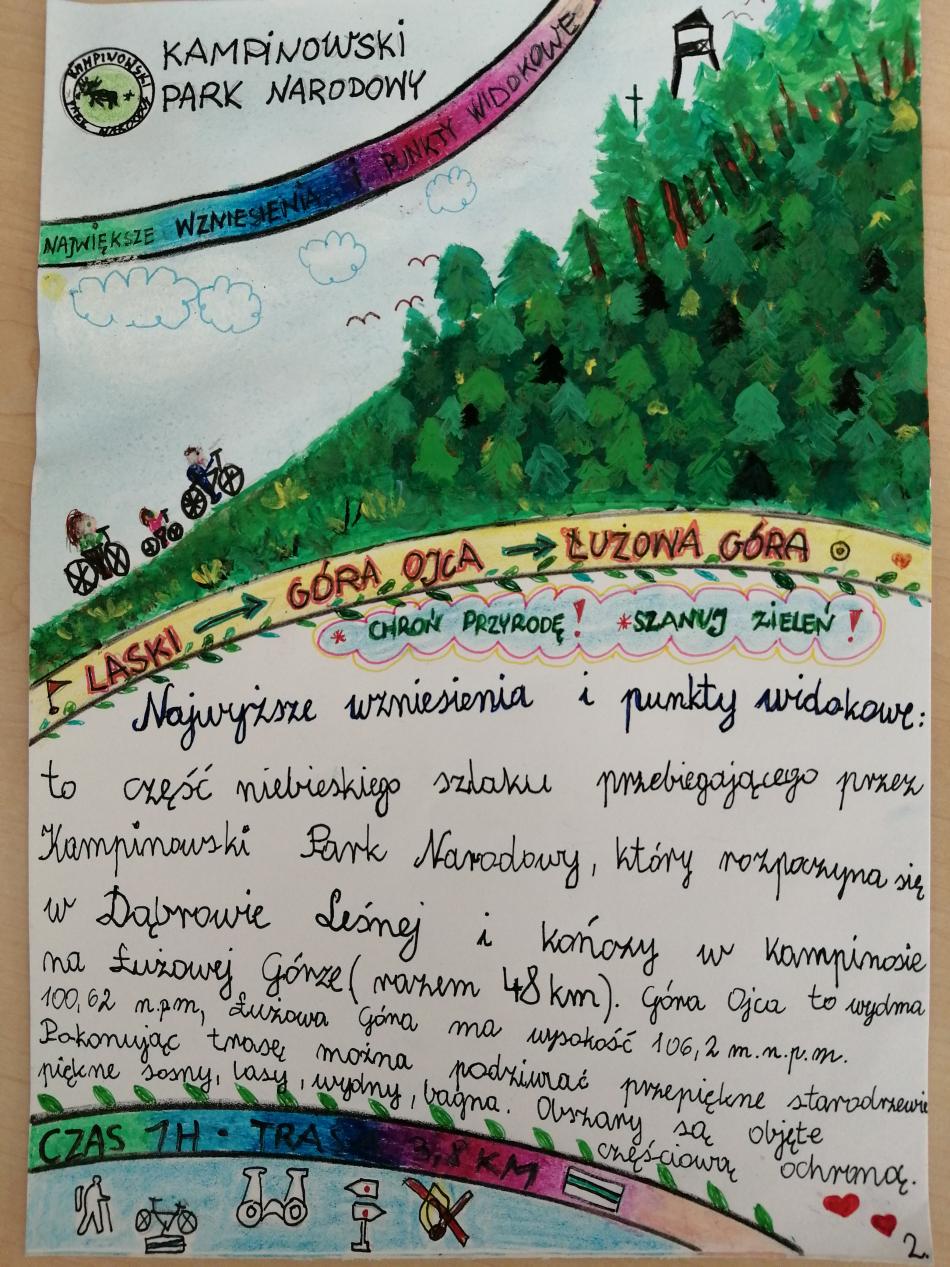 KAMPINOWSKI
PARK NARODOWY
KAMPINOWSKI
PARK NARODOWY
NAJWIĘKSZE WZNIESIENIA I PUNKTY WIDOKOWE
LASKI → GÓRA OJCA → ŁUŻOWA GÓRA
* CHROŃ PRZYRODĘ! * SZANUJ ZIELEŃ!
Najwyższe wzniesienia i punkty widokowe:
to część niebieskiego szlaku przebiegającego przez
Kampinowski Park Narodowy, który rozpoczyna się
w Dąbrowie Leśnej i kończy w Kampinosie
na Łużowej Górze (razem 48 km). Góra Ojca to wydma
100,62 n.p.m, Łużowa Góra ma wysokość 106,2 m.n.p.m.
Pokonując trasę można podziwiać przepiękne starodrzewie
piękne sosny, lasy, wydmy, bagna. Obszary są objęte
częściową ochroną.
CZAS 1H • TRASA 3,8 KM
2.